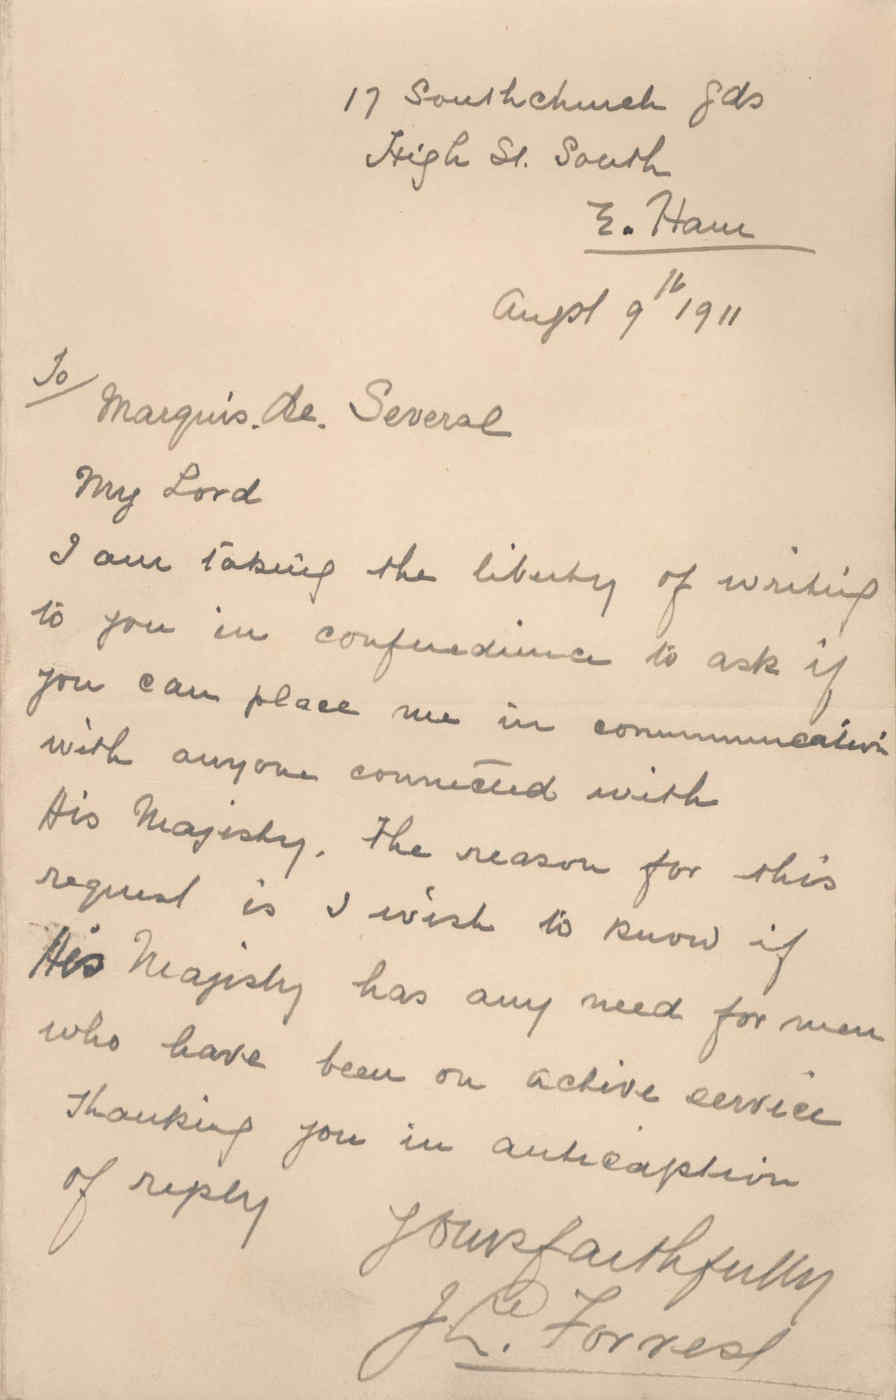 17 Southchurch gds
High St. South
E. Ham
Augst 9th 1911
To
Marquis. de. Several
My Lord
I am taking the liberty of writing
to you in confuedience to ask if
you can place me in communication
with anyone connected with
His Majisty. The reason for this
request is I wish to know if
His Majisty has any need for men
who have been on active service
Thanking you in anticaption
of reply
Yours faithfully
Forrest